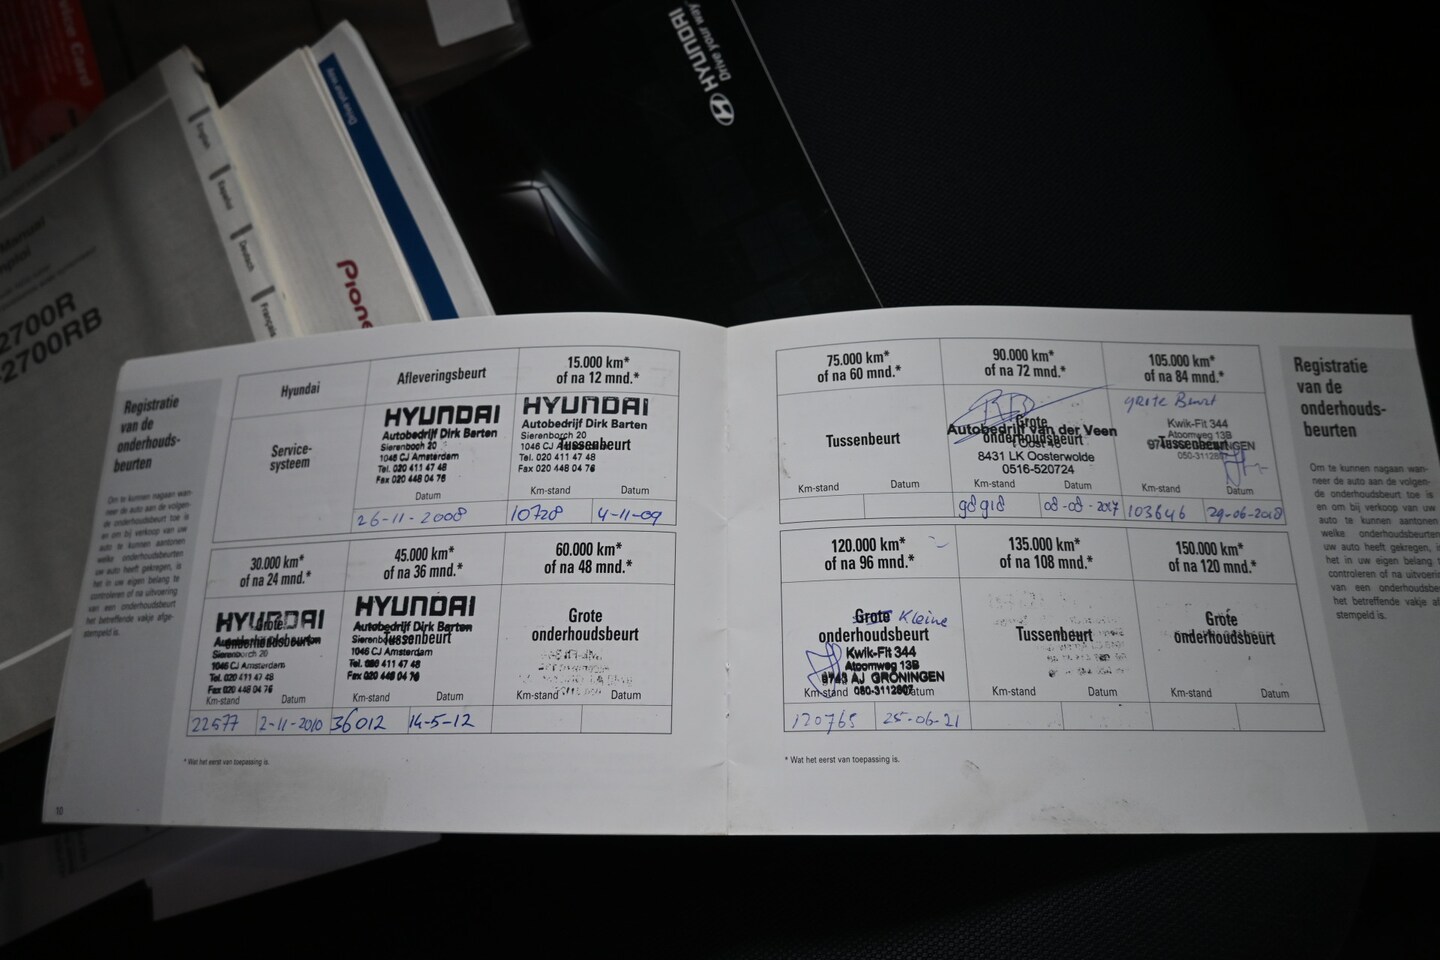 HYUNDAI
Drive your way
Drive your way
English
Español
Deutsch
Français
Manual
2700R
2700RB
Pione
Registratie
van de
onderhouds-
beurten
Om te kunnen nagaan wan-
neer de auto aan de volgen-
de onderhoudsbeurt toe is
en om bij verkoop van uw
auto te kunnen aantonen
welke onderhoudsbeurten
uw auto heeft gekregen, is
het in uw eigen belang te
controleren of na uitvoering
van een onderhoudsbeurt
het betreffende vakje afge-
stempeld is.
10
Hyundai
Service-
systeem
Afleveringsbeurt
HYUNDAI
Autobedrijf Dirk Barten
Sierenborch 20
1046 CJ Amsterdam
Tel. 020 411 47 48
Fax 020 448 04 76
Datum
26-11-2008
15.000 km*
of na 12 mnd.*
HYUNDAI
Autobedrijf Dirk Barten
Sierenborch 20
1046 CJ Amsterdam
Tussenbeurt
Tel. 020 411 47 48
Fax 020 448 04 76
Km-stand Datum
10728 4-11-09
30.000 km*
of na 24 mnd.*
HYUNDAI
Grote
onderhoudsbeurt
Autobedrijf Dirk Barten
Sierenborch 20
1046 CJ Amsterdam
Tel. 020 411 47 48
Fax 020 448 04 76
Km-stand Datum
22577 2-11-2010
45.000 km*
of na 36 mnd.*
HYUNDAI
Autobedrijf Dirk Barten
Sierenborch 20
Tussenbeurt
1046 CJ Amsterdam
Tel. 020 411 47 48
Fax 020 448 04 76
Km-stand Datum
36012 14-5-12
60.000 km*
of na 48 mnd.*
Grote
onderhoudsbeurt
Km-stand Datum
* Wat het eerst van toepassing is.
75.000 km*
of na 60 mnd.*
Tussenbeurt
Km-stand Datum
90.000 km*
of na 72 mnd.*
Grote
onderhoudsbeurt
Autobedrijf van der Veen
8431 LK Oosterwolde
0516-520724
98918 08-08-2017
105.000 km*
of na 84 mnd.*
grote Beurt
Kwik-Fit 344
Atoomweg 13B
Tussenbeurt
Km-stand Datum
103646 29-06-2018
120.000 km*
of na 96 mnd.*
Grote Kleine
onderhoudsbeurt
Kwik-Fit 344
Atoomweg 13B
9743 AJ GRONINGEN
050-3112807
Km-stand Datum
120765 25-06-21
135.000 km*
of na 108 mnd.*
Tussenbeurt
Km-stand Datum
150.000 km*
of na 120 mnd.*
Grote
onderhoudsbeurt
Km-stand Datum
* Wat het eerst van toepassing is.
Registratie
van de
onderhouds-
beurten
Om te kunnen nagaan wan-
neer de auto aan de volgen-
de onderhoudsbeurt toe is
en om bij verkoop van uw
auto te kunnen aantonen
welke onderhoudsbeurten
uw auto heeft gekregen, is
het in uw eigen belang te
controleren of na uitvoering
van een onderhoudsbe
het betreffende vakje afge-
stempeld is.